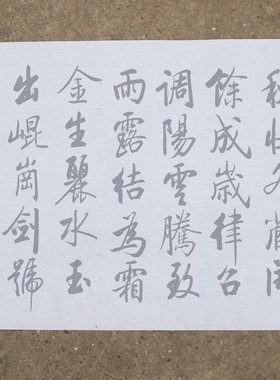 秋收冬藏閏
餘成歲律召
調陽雲騰致
雨露結為霜
金生麗水玉
出崐崗劍號